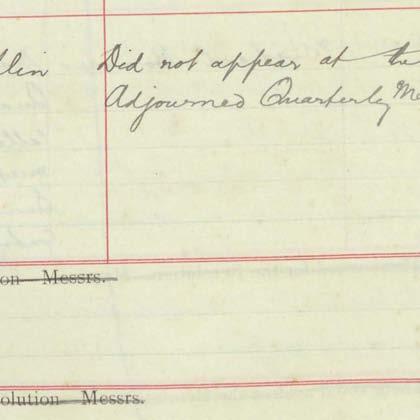 llin Did not appear at the
Adjourned Quarterley Me
on Messrs.
olution Messrs.